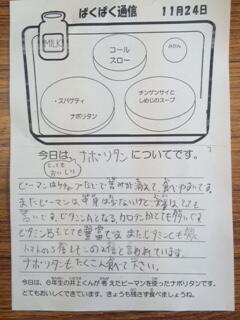 ぱくぱく通信　11月24日
MILK
コール
スロー
みかん
・スパゲティ
ナポリタン
チンゲンサイと
しめじのスープ
今日は、ナポリタンについてです。
とっても
おいしい
ピーマンはケチャップなどで苦みが消えて、食べやすいです。
またピーマンは
です。ビタミンAとなるカロテンがとても多いです。
ビタミン もとても豊富です。またビタミンCも
トマトの5倍レモンの2倍と言われています。
ナポリタンもたくさん食べて下さい。
今日は、6年生の井上くんが考えたピーマンを使ったナポリタンです。
とてもおいしくできています。きょうも残さず食べましょうね。